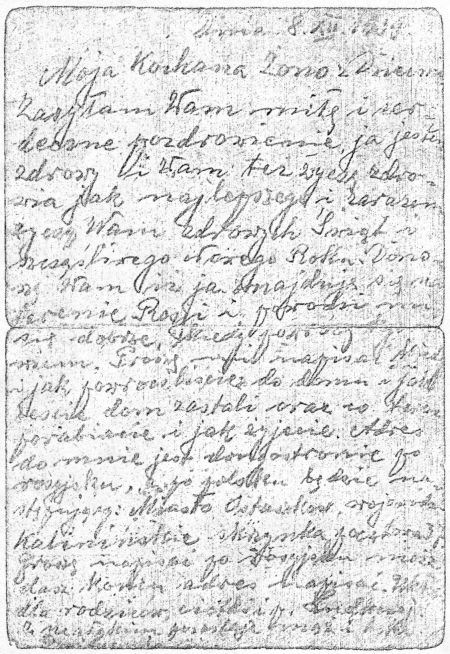 Dnia 8.XII.1939.
Moja Kochana Żono z Dziećmi
Zasyłam Wam miłe i ser-
deczne pozdrowienie, ja jestem
zdrowy i Wam też życzę zdro-
wia jak najlepszego i zarazem
życzę Wam zdrowych Świąt i
szczęśliwego Nowego Roku. Dono-
szę Wam iż ja znajduję się na
terenie Rosji i powodzi mi
się dobrze,
wiem. Proszę mi napisać
i jak powróciliście do domu i jak
żeście dom zastali oraz co teraz
porabiacie i jak żyjecie. Adres
do mnie jest drugostronie po
rosyjsku, a po polsku będzie na-
stępujący: Miasto Ostaszków, wojewódz.
Kalinińskie skrzynka pocztowa
Proszę napisać po rosyjsku
dasz komu adres napisać.
dla rodziców, i p.
z pozostaję mąż i